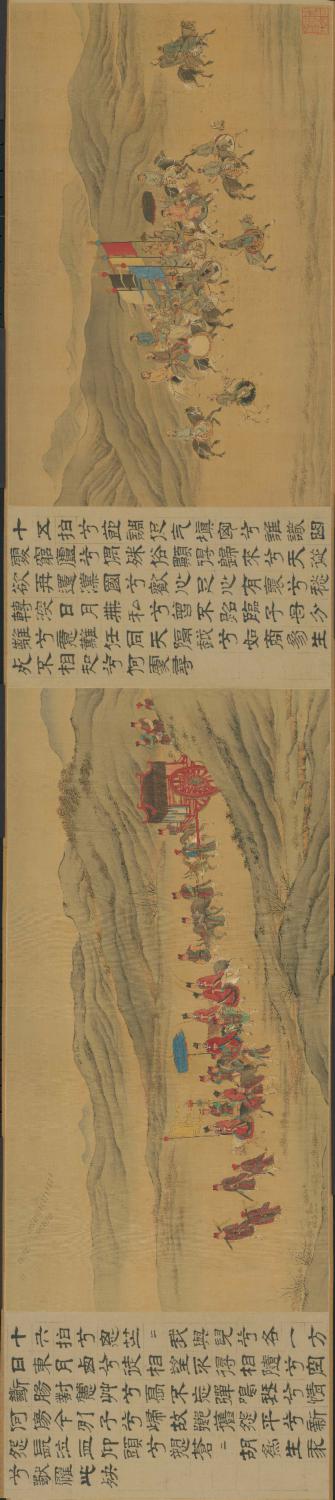 十五拍兮節調促气填胸兮誰識曲
處窮廬兮偶殊俗願得歸來兮天從
欲再還漢國兮歡心足心有懷兮愁
轉深日月無私兮曾不照臨子母分
離兮意難任同天隔越兮如商參生
死不相知兮何處尋
十六拍兮思茫=我與兒兮各一方
日東月西兮徒相望不得相隨兮空
斷腸對萱草兮憂不忘彈鳴琴兮情
何傷今別子兮歸故鄉舊怨平兮新
怨長泣血仰頭兮愬蒼=胡爲生
兮獨罹此殃